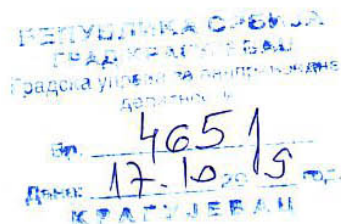 РЕПУБЛИКА СРБИЈА
ГРАД КРАГУЈЕВАЦ
Градска управа за
Бр. 4651
Дана: 17.10 20 год.
КРАГУЈЕВАЦ